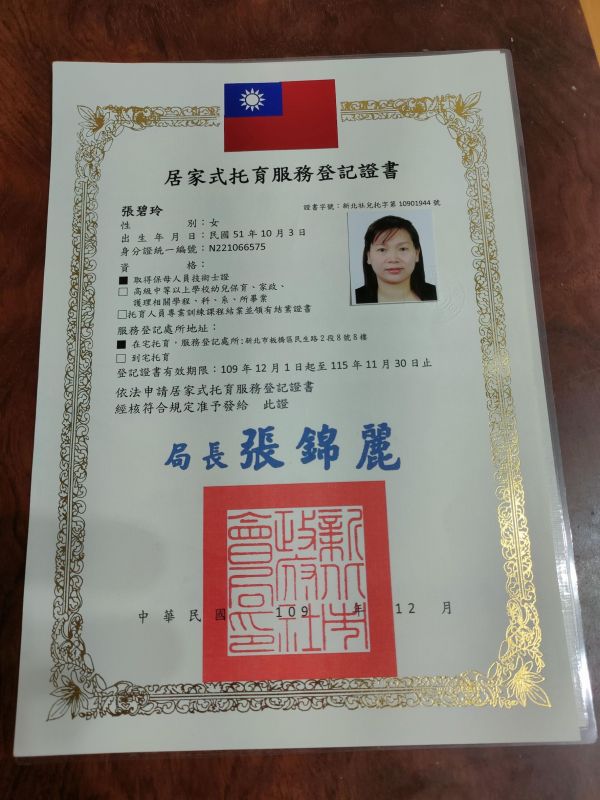 居家式托育服務登記證書
證書字號：新北社兒托字第 10901944 號
張碧玲
性別：女
出生年月日：民國 51 年 10 月 3 日
身分證統一編號：N221066575
資格：
■ 取得保母人員技術士證
□ 高級中等以上學校幼兒保育、家政、
護理相關學程、科、系、所畢業
□托育人員專業訓練課程結業並領有結業證書
服務登記處所地址：
■ 在宅托育，服務登記處所:新北市板橋區民生路 2 段 8 號 8 樓
□ 到宅托育
登記證書有效期限：109 年 12 月 1 日起至 115 年 11 月 30 日止
依法申請居家式托育服務登記證書
經核符合規定准予發給 此證
局長 張錦麗
新北市政府社會局印
中華民國 109 年 12 月